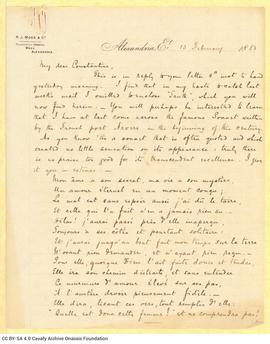 R. J. MOSS & CO
ALEXANDRIA.
Alexandria, Et. 13 February 1883
My dear Constantine,
This is in reply to your letter to hand
yesterday morning. I find that in my haste to catch last
week's mail I omitted to enclose which you will
now find herein. You will perhaps be interested to learn
that I have at last come across the famous Sonnet written
by the French poet Arvers in the beginning of the century.
As you know the a sonnet that is often quoted and which
created no little sensation on its appearance: truly there
is no praise too good for its transcendent excellence. I give
it you in extenso:
Mon âme a son secret, ma vie a son mystère,
Un amour éternel en un moment conçu;
Le mal est sans espoir aussi j'ai dû le taire,
Et celle qui l'a fait n'en a jamais rien su.
Hélas! j'aurai passé près d'elle inaperçu,
Toujours à ses côtés et pourtant solitaire
Et j'aurai jusqu'au bout fait mon temps sur la terre
N'osant rien demander, et n'ayant rien reçu.
Pour elle, quoique Dieu l'ait faite douce et tendre,
Elle ira son chemin distraite, et sans entendre
Ce murmure d'amour élevé sur ses pas,
À l'austère devoir pieusement fidèle.
Elle dira, lisant ces vers, tout remplis d'elle:
"Quelle est donc cette femme? et ne comprendra pas!
CC BY-SA 4.0 Cavafy Archive Onassis Foundation